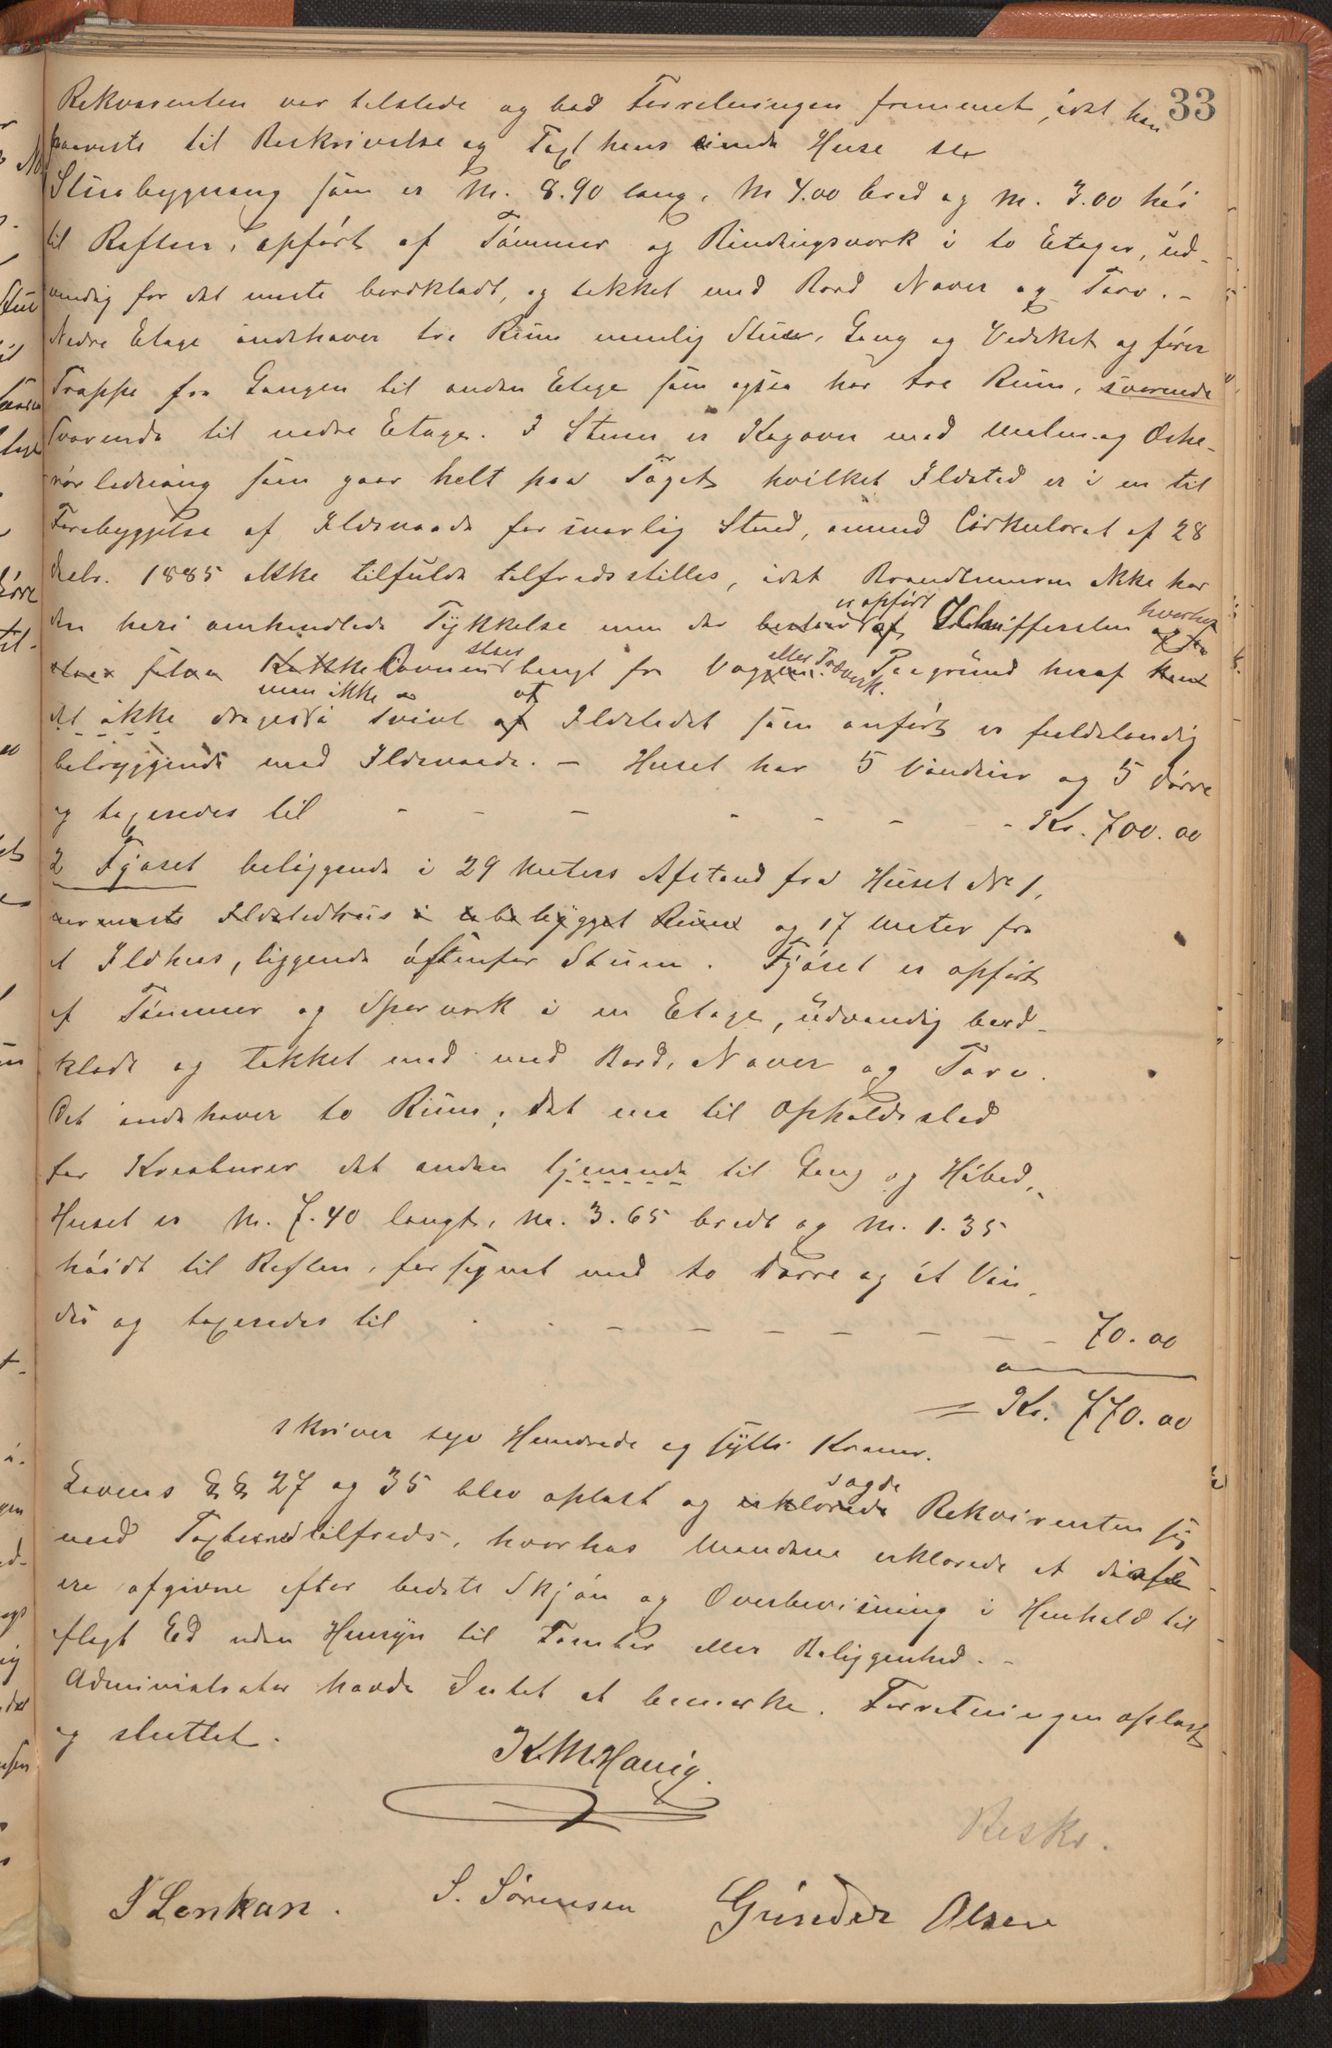 33
Rekvirenten var tilstede og bad Forretningen fremmet, idet han
paaviste til Beskrivelse og Taxt hans Huse
Stuebygning som er M. 8.90 lang, M 4.00 bred og M. 3.00 høi
til Raften, opført af Tømmer og Bindingsverk i to Etager, ud-
vendig for det meste bordklædt, og tækket med Bord Næver og Torv. -
Nedre Etage indehaver tre Rum nemlig Stue, Gang og og fører
Trappe fra Gangen til anden Etage som ogsaa har tre Rum, svarende
svarende til nedre Etage. I Stuen er Kogovn med
rørledning som gaar helt paa Taget hvilket Ildsted er i en til
Forebyggelse af Ildsvaade forsvarlig Stand, omend Cirkuleret af 28
Decbr. 1885 ikke tilfulde tilfredsstilles, idet Brandmuren ikke har
den heri omhandlede Tykkelse men der er opført af Skiffersten hvorhos
Ovnen staar langt fra Væggen eller Træverk. Paagrund heraf
det ikke men ikke drages i Tvivl at Ildstedet som anført er fuldstændig
betryggende mod Ildsvaade. - Huset har 5 Vinduer og 5 Dørre
og taxeredes til - - - - - - - Kr. 700.00
2 Fjøset beliggende i 29 Meters Afstand fra Huset No 1,
nærmeste Ildstedhus i ubebygget Rum og 17 Meter fra
et Ildhus, liggende østenfor Stuen. Fjøset er opført
af Tømmer og Sperverk i en Etage, udvendig bord-
klædt og tækket med med Bord, Næver og Torv.
Det indehaver to Rum; det ene til Opholdssted
for Kreaturer det andet tjenende til Gang og Høbod,
Huset er M. 7.40 langt, M. 3.65 bredt og M. 1.35
høidt til Raften, forsynet med to Dørre og et Vin-
du og taxeredes til - - - - - - - 70.00
= Kr. 770.00
skriver syv Hundrede og sytti Kroner.
Lovens §§ 27 og 35 blev oplæst og erklærede sagde Rekvirenten sig
med Taxten tilfreds, hvorhos Mændene erklærede at disse
ere afgivne efter bedste Skjøn og Overbevisning i Henhold til
aflagt Ed uden Hensyn til Tomter eller Beliggenhed. -
Administrator havde Intet at bemærke. Forretningen oplæst
og sluttet.
K.M.Hanig.
Beskr.
S. Sørensen
Gunder Olsen